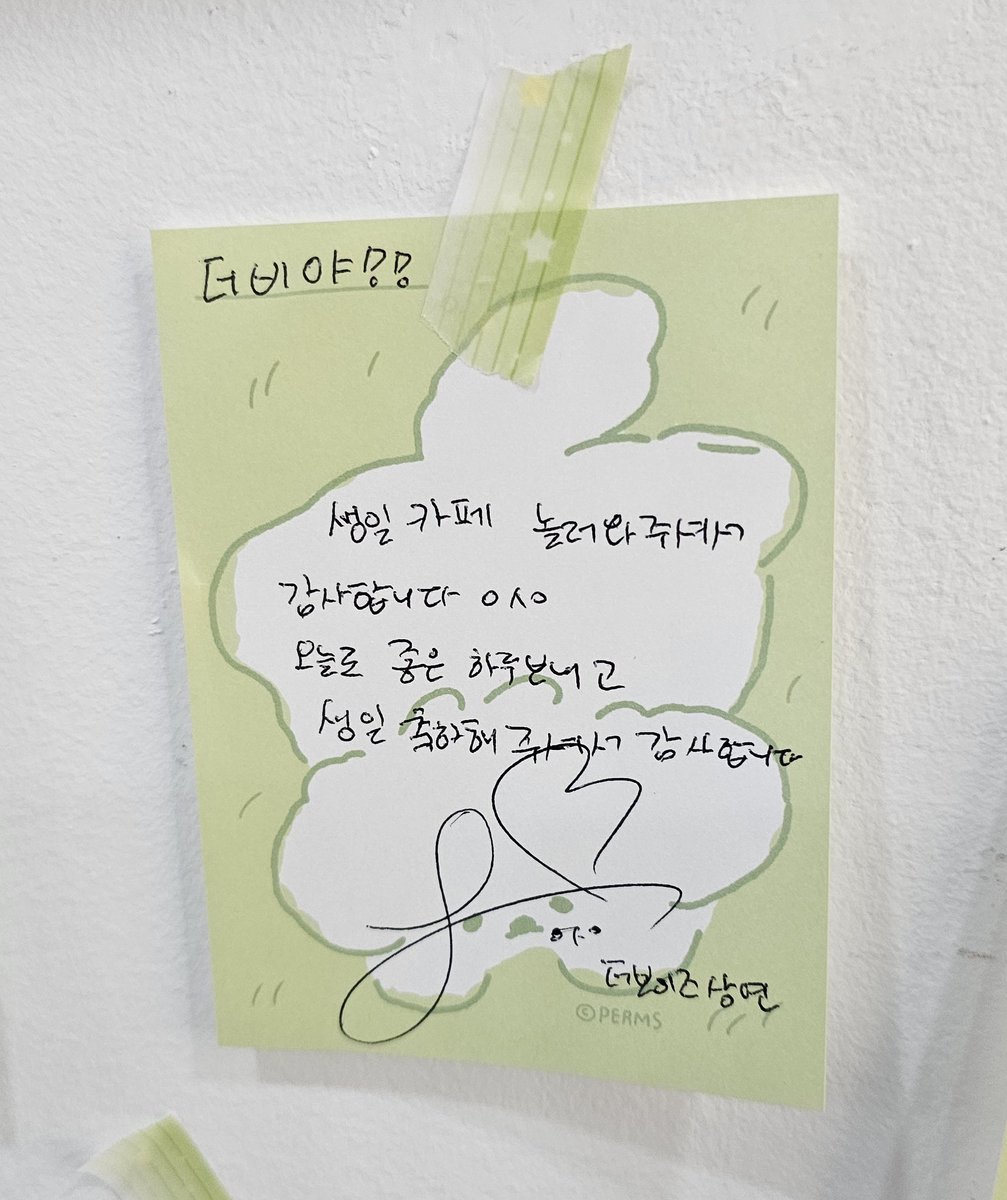 더비야!!
생일 카페 놀러와 주셔서
감사합니다 ㅇㅅㅇ
오늘도 좋은 하루 보내고
생일 축하해 주셔서 감사합니다
더보이즈 상연
©PERMS